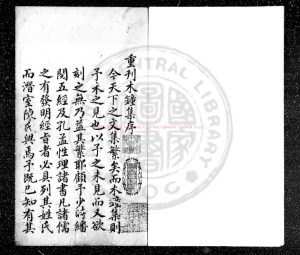 重刊木鐘集序
今天下之文集繁矣而木鐘集則
予未之見也以予之未見而又欲
刻之無乃益其繁耶顧予少時繙
閱五經及孔孟性理諸書凡諸儒
之有發明經旨者必具列其姓氏
而潛室陳氏與焉予既已知有其
CENTRAL LIBRARY